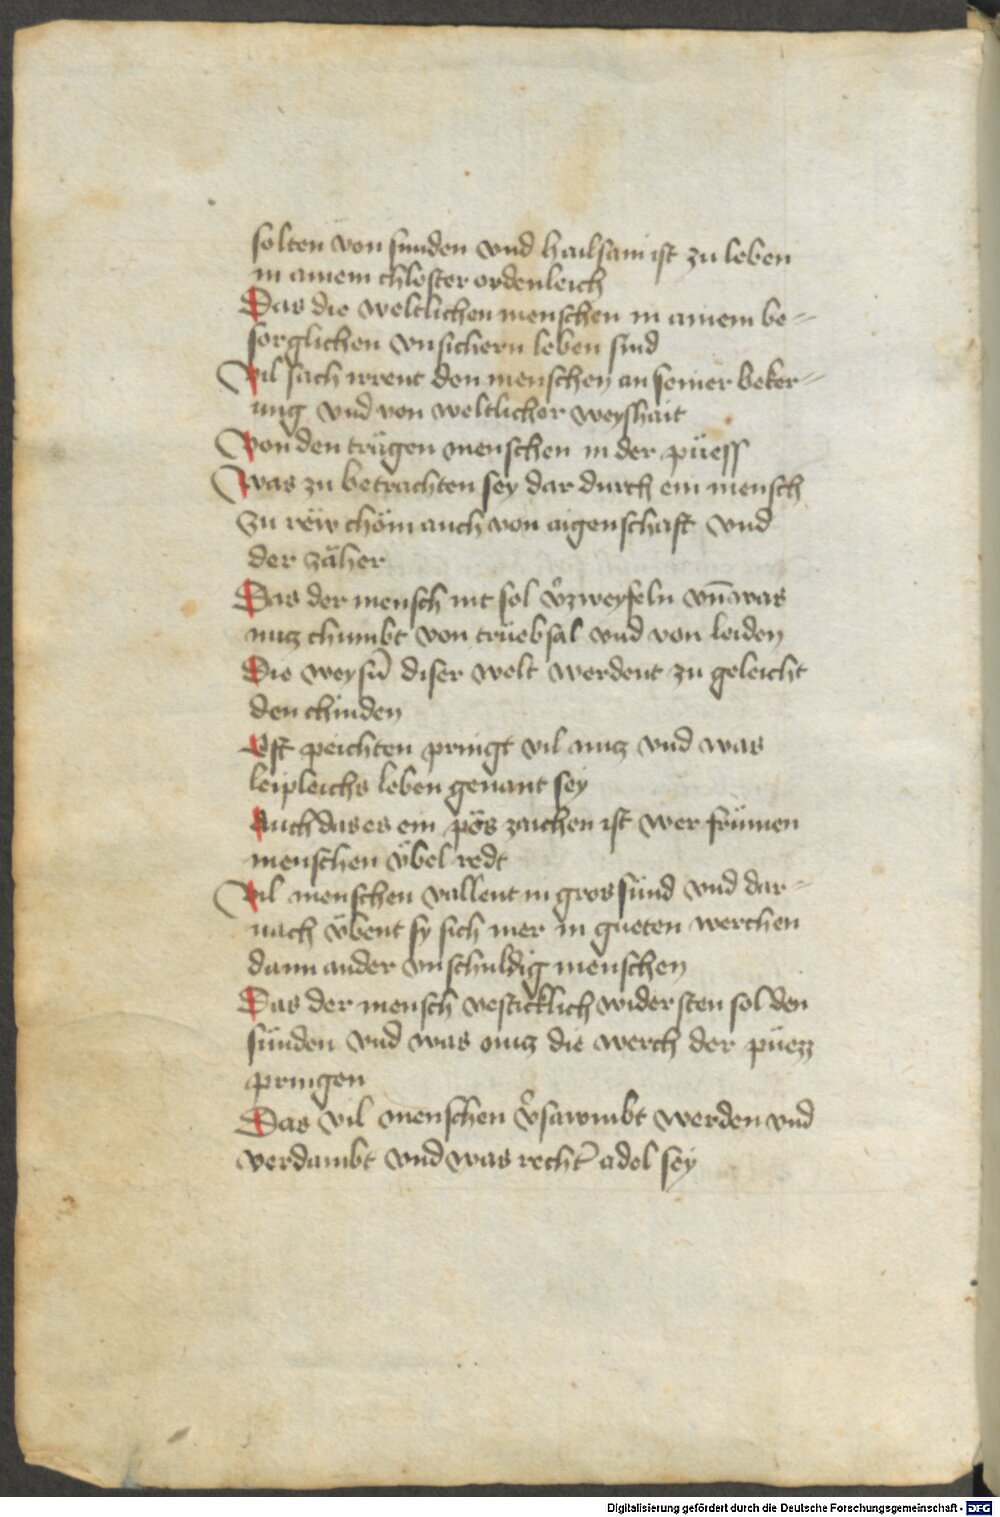 solten von sunden vnd hailsam ist zu leben
in ainem chloster ordenleich
Das die weltlichen menschen in ainem be-
sorglichen vnsichern leben sind
Vil sach irrent den menschen an seiner beker-
ung vnd von weltlicher weyshait
Von den trägen menschen in der püess
Was zu betrachten sey dar durch ein mensch
zu rëw chöm auch von aigenschaft vnd
der zäher
Das der mensch nit sol v̉zweyfeln vn̄ was
nutz chumbt von trüebsal vnd von leiden
Die weysn̄ diser welt werdent zu geleicht
den chinden
Oft peichten pringt vil nutz vnd was
leipleichs leben genant sey
Auch das es ein pös zaichen ist wer frümen
menschen übel redt
Vil menschen vallent in gros sünd vnd dar-
nach übent sy sich mer in gueten werchen
dann ander vnschuldig menschen
Das der mensch vesticklich widersten sol den
sünden vnd was nutz die werch der püezz
pringen
Das vil menschen v̉sawmbt werden vnd
verdambt vnd was recht̉ adel sey
Digitalisierung gefördert durch die Deutsche Forschungsgemeinschaft - DFG